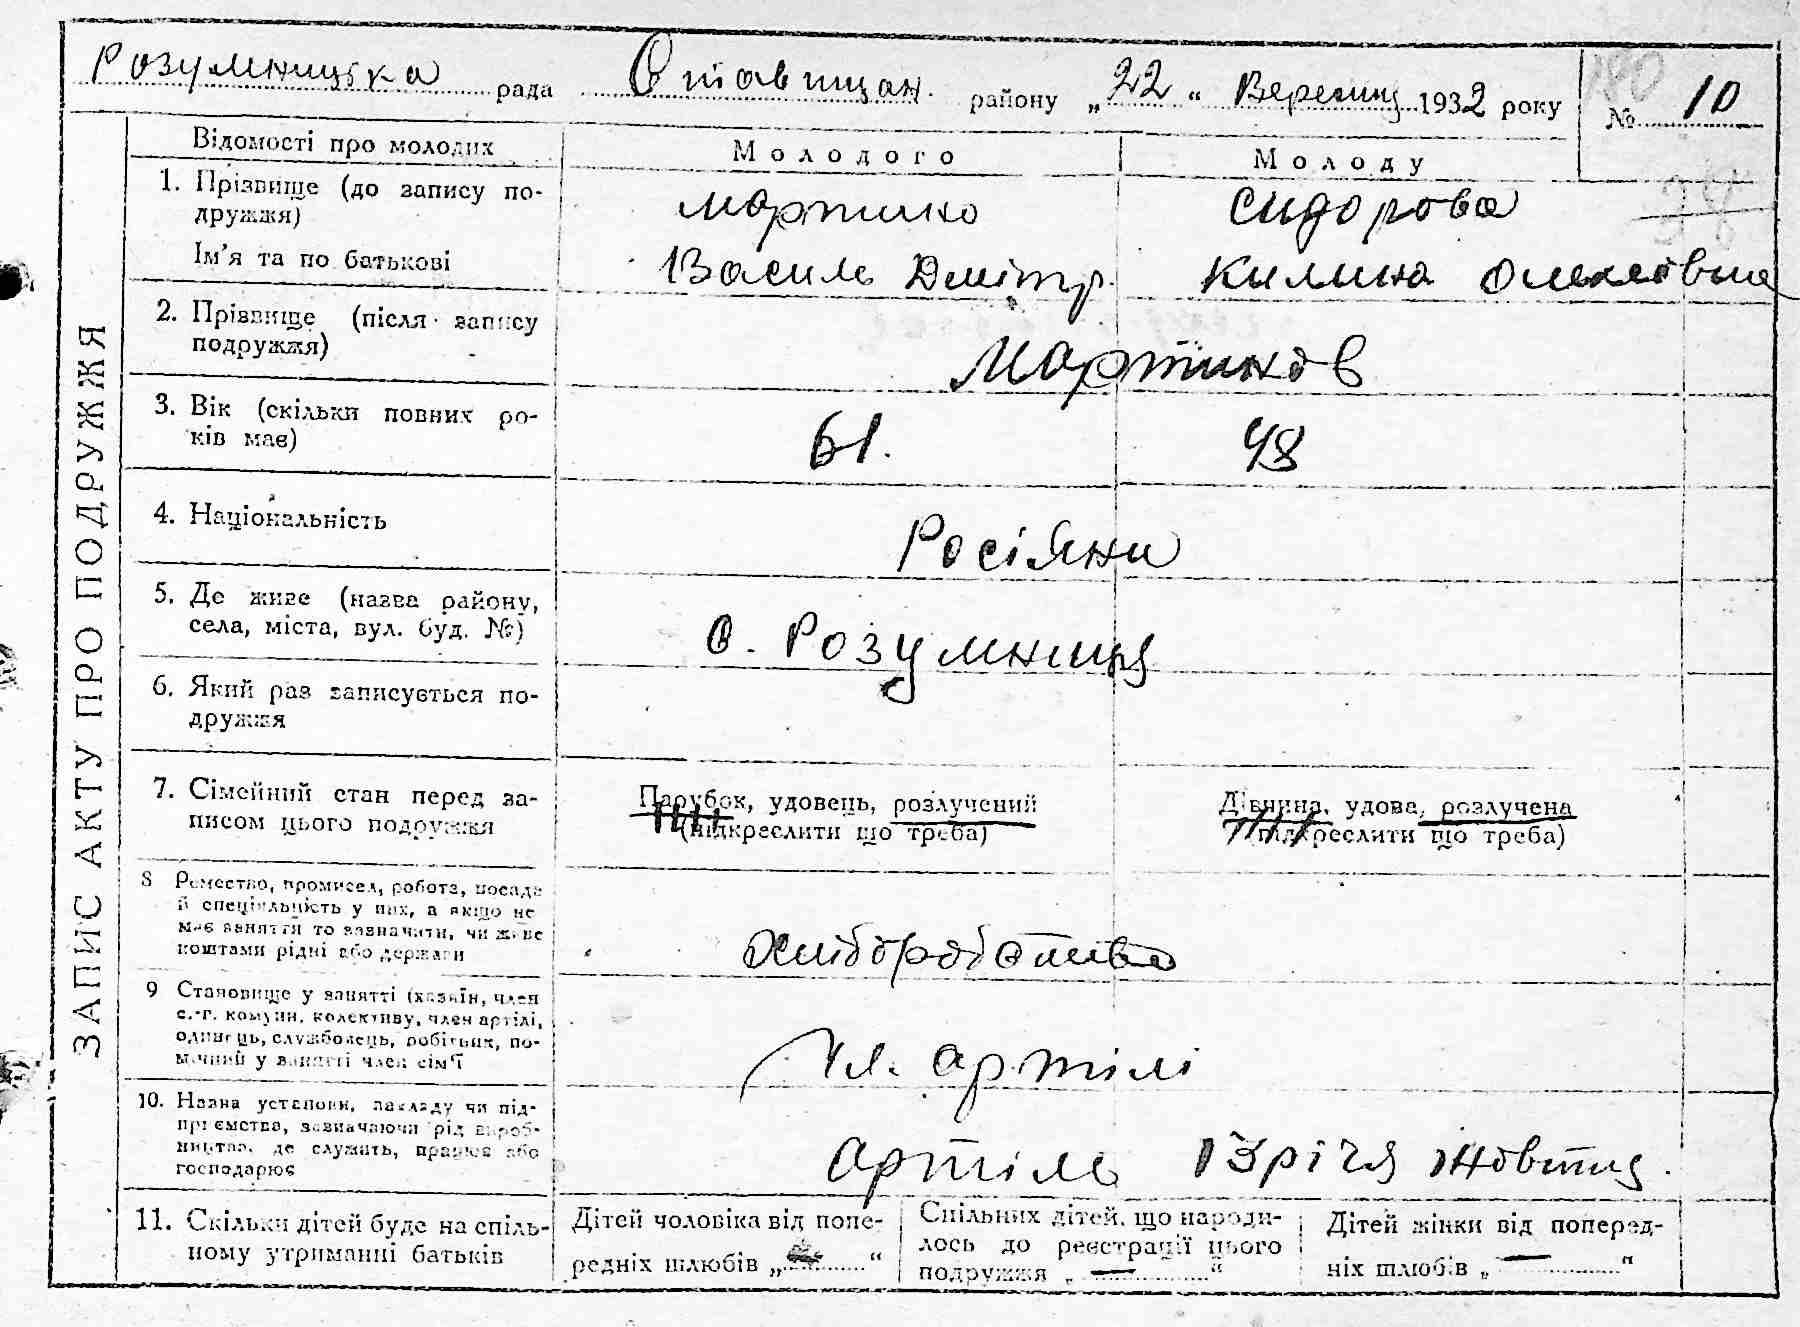 Розумницька рада Ставищан. району „22“ Вересня 1932 року № 10
ЗАПИС АКТУ ПРО ПОДРУЖЖЯ
Відомості про молодих
Молодого
Молоду
1. Прізвище (до запису по-
дружжя)
Мартинко
Сидорова
Ім’я та по батькові
Василь Дмітр.
Килина
2. Прізвище (після запису
подружжя)
Мартинков
3. Вік (скільки повних ро-
ків має)
61.
48
4. Національність
Росіяни
5. Де живе (назва району,
села, міста, вул. буд. №)
с. Розумниця
6. Який раз записується по-
дружжя
7. Сімейний стан перед за-
писом цього подружжя
Парубок, удовець, розлучений
(підкреслити що треба)
Дівчина, удова, розлучена
(підкреслити що треба)
8 Ремество, промисел, робота, посада
й спеціяльність у них, а якщо не
має заняття то зазначити, чи живе
коштами рідні або держави
хліборобство
9 Становище у занятті (хазяїн, член
с.-г. комуни, колективу, член артілі,
одинець, службовець, робітник, по-
мічний у занятті член сім’ї
Чл. артілі
10. Назва установи, закладу чи під-
приємства, зазначаючи рід вироб-
ництва, де служить, працює або
господарює
Артіль 13річя жовтня.
11. Скільки дітей буде на спіль-
ному утриманні батьків
Дітей чоловіка від попе-
редніх шлюбів „ “
Спільних дітей, що народи-
лось до реєстрації цього
подружжя „ — “
Дітей жінки від поперед-
ніх шлюбів „ — “